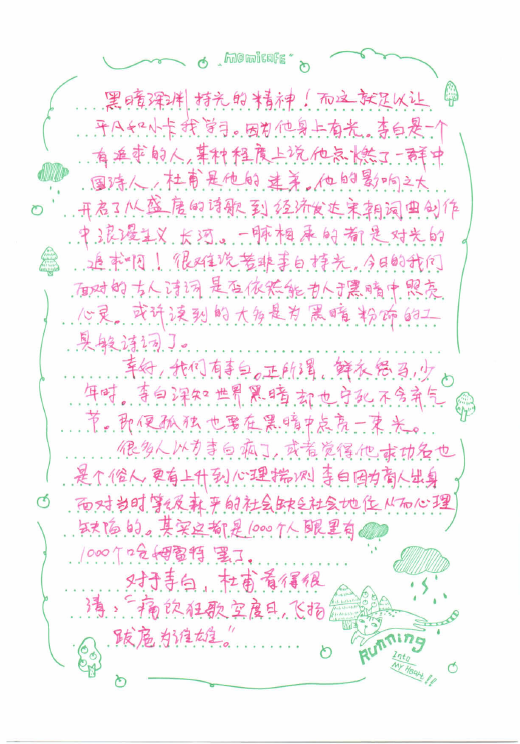 momicafe
黑暗深渊持光的精神！而这就足以让
平凡如小卡我学习。因为他身上有光。李白是一个
有追求的人，某种程度上说他点燃了一群中
国诗人，杜甫是他的迷弟。他的影响之大
开启了从盛唐的诗歌到经济发达宋朝词曲创作
中浪漫主义长河。一脉相承的都是对光的
追求啊！很难说若非李白持光，今日的我们
面对的古人诗词是否依然能为人于黑暗中照亮
心灵。或许谈到的大多是为黑暗粉饰的工
具般诗词了。
幸好，我们有李白。正所谓，鲜衣怒马，少
年时。李白深知世界黑暗却也宁死不舍弃气
节。即便孤独也要在黑暗中点亮一束光。
很多人以为李白疯了，或者觉得他求功名也
是个俗人，更有上升到心理揣测李白因为商人出身
面对当时等级森严的社会缺乏社会地位从而心理
缺陷的。其实这都是1000个人眼里有
1000个哈姆雷特罢了。
对于李白，杜甫看得很
清：“痛饮狂歌空度日，飞扬
跋扈为谁雄。”
Running
Into
My Heart!!